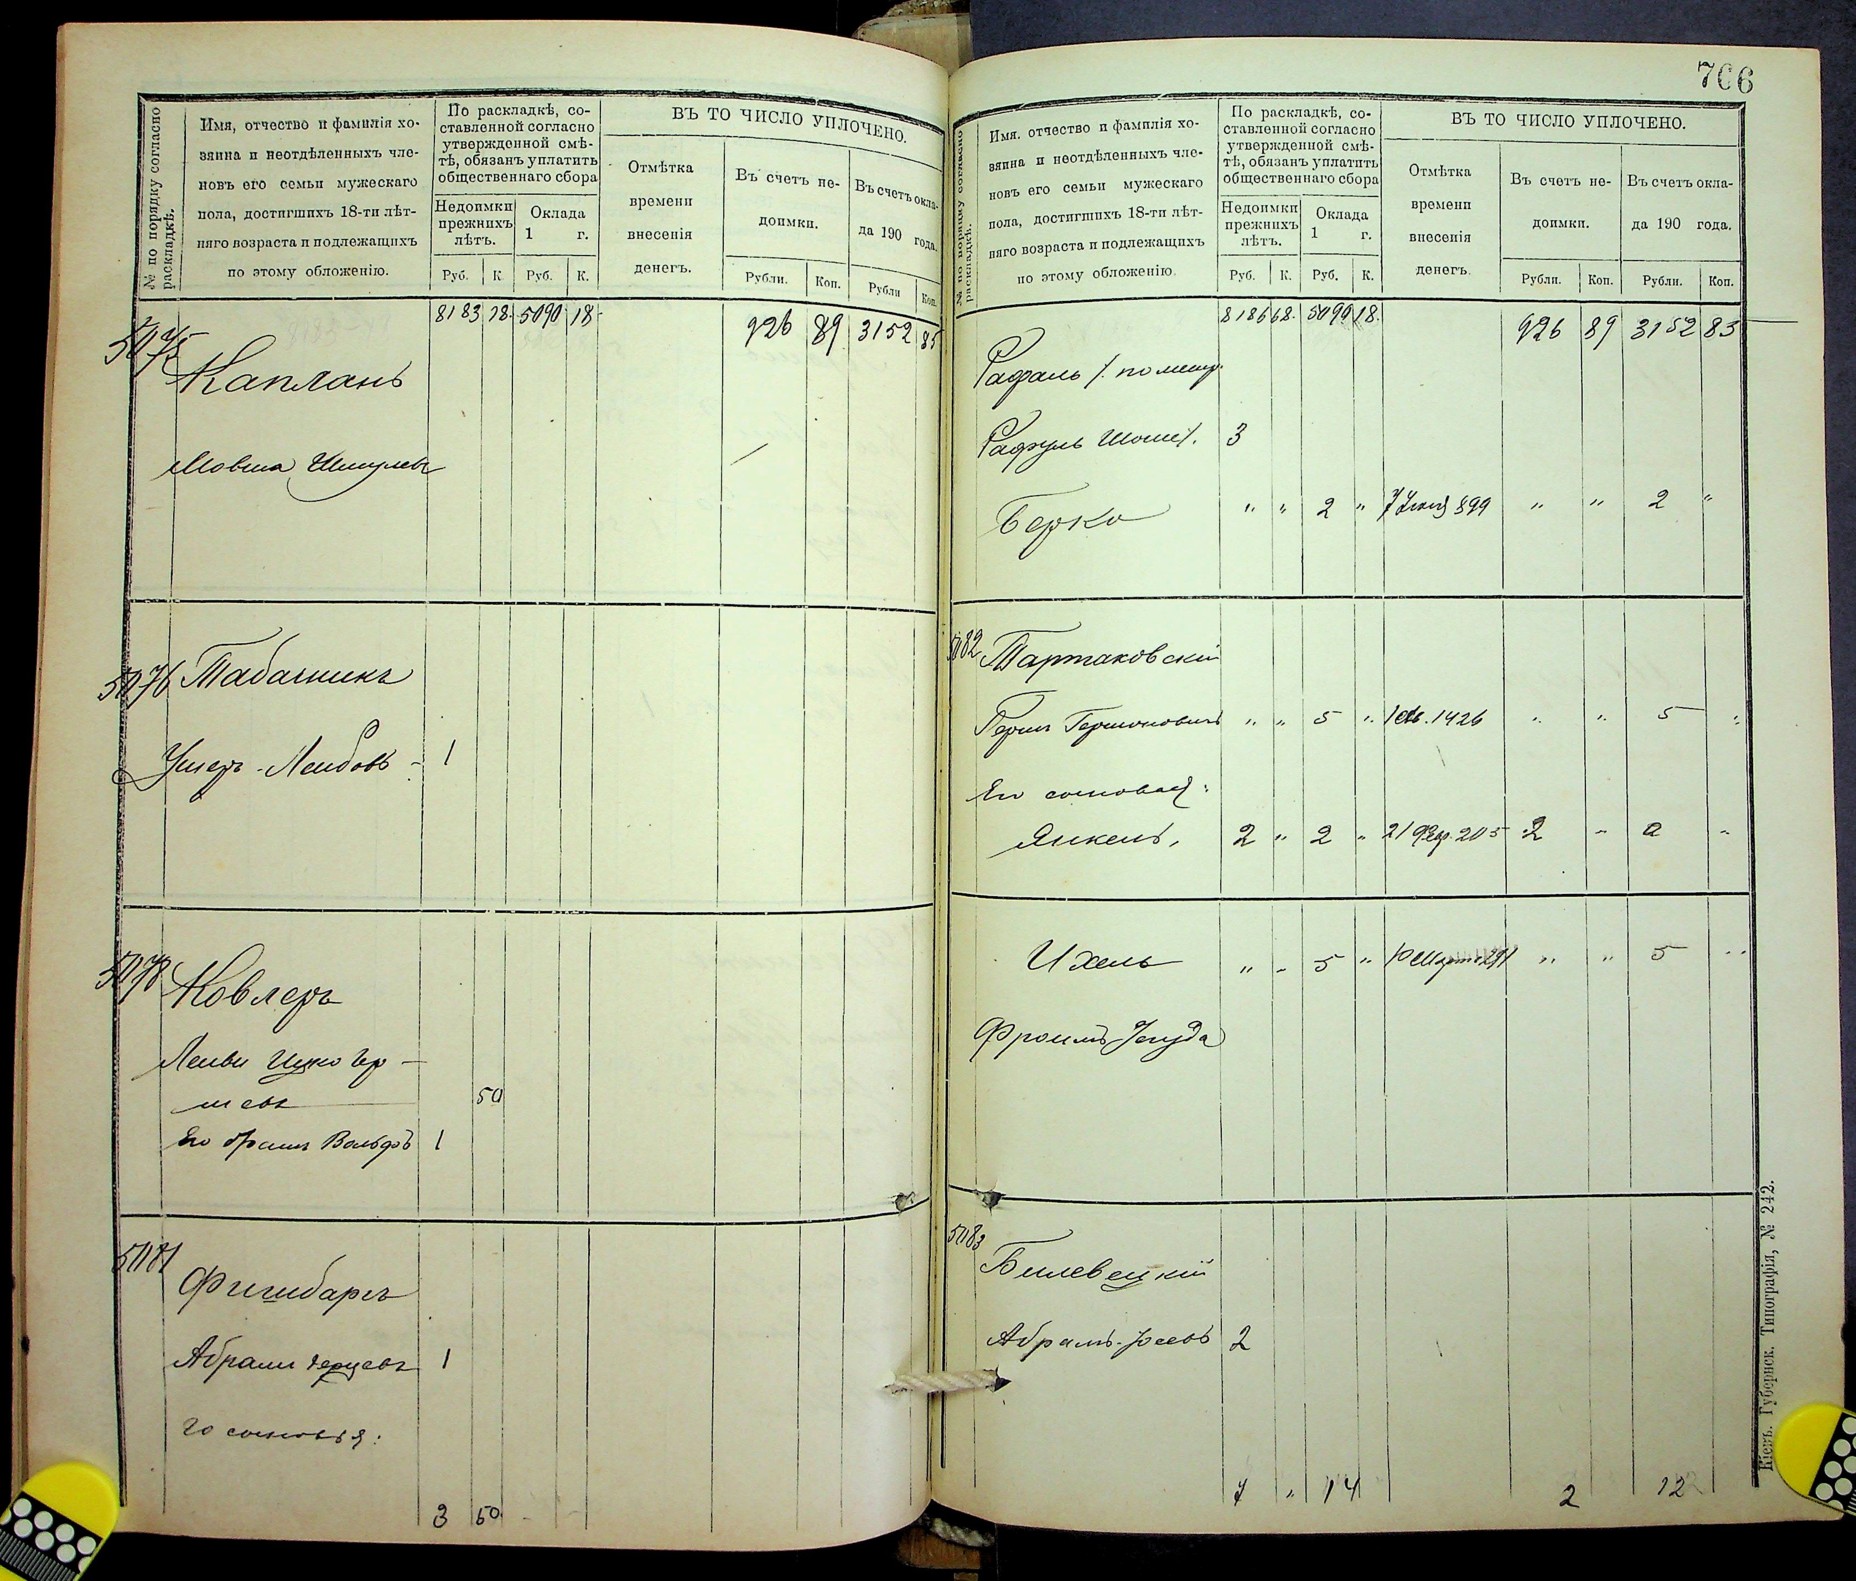 № по порядку согласно раскладкѣ.
Имя, отчество и фамилія хо-
зяина и неотдѣленныхъ чле-
новъ его семьи мужескаго
пола, достигшихъ 18-ти лѣт-
няго возраста и подлежащихъ
по этому обложенію.
По раскладкѣ, со-
ставленной согласно
утвержденной смѣ-
тѣ, обязанъ уплатить
общественнаго сбора
Недоимки
прежнихъ
лѣтъ.
Оклада
1 г.
Руб. К. Руб. К.
ВЪ ТО ЧИСЛО УПЛОЧЕНО.
Отмѣтка
времени
внесенія
денегъ.
Въ счетъ не-
доимки.
Въ счетъ окла-
да 190 года.
Рубли. Коп. Рубли Коп.
8183 18 5090 18 926 89 3152 85
5075 Капланъ
Мовша Шмулевъ
5076 Табачникъ
Ушеръ-Лейбовъ 1
5078 Ковлеръ
Лейви Ицко Гер-
шевъ 50
Его братъ Вольфъ 1
5081
Фишбаръ
Абрамъ Герцевъ 1
го сыновья:
3 50
706
№ по порядку согласно раскладкѣ.
Имя, отчество и фамилія хо-
зяина и неотдѣленныхъ чле-
новъ его семьи мужескаго
пола, достигшихъ 18-ти лѣт-
няго возраста и подлежащихъ
по этому обложенію.
По раскладкѣ, со-
ставленной согласно
утвержденной смѣ-
тѣ, обязанъ уплатить
общественнаго сбора
Недоимки
прежнихъ
лѣтъ.
Оклада
1 г.
Руб. К. Руб. К.
ВЪ ТО ЧИСЛО УПЛОЧЕНО.
Отмѣтка
времени
внесенія
денегъ.
Въ счетъ не-
доимки.
Въ счетъ окла-
да 190 года.
Рубли. Коп. Рубли. Коп.
8186 68 5090 18 926 89 3152 85
Рафаль
Рафуль 3
Берко " " 2 " 7 899 " " 2 "
5082 Тартаковскій
Герш Гершоновичъ " " 5 " 1426 " " 5 "
Его сыновья:
Янкель, 2 " 2 " 21 205 2 " "
Ихель " " 5 " 10 Марта 291 " " 5 "
Фроимъ Іегуда
5083
Билевецкій
Абрамъ-Іосевъ 2
7 " 14 2 12
Кіевъ. Губернск. Типографія, № 242.